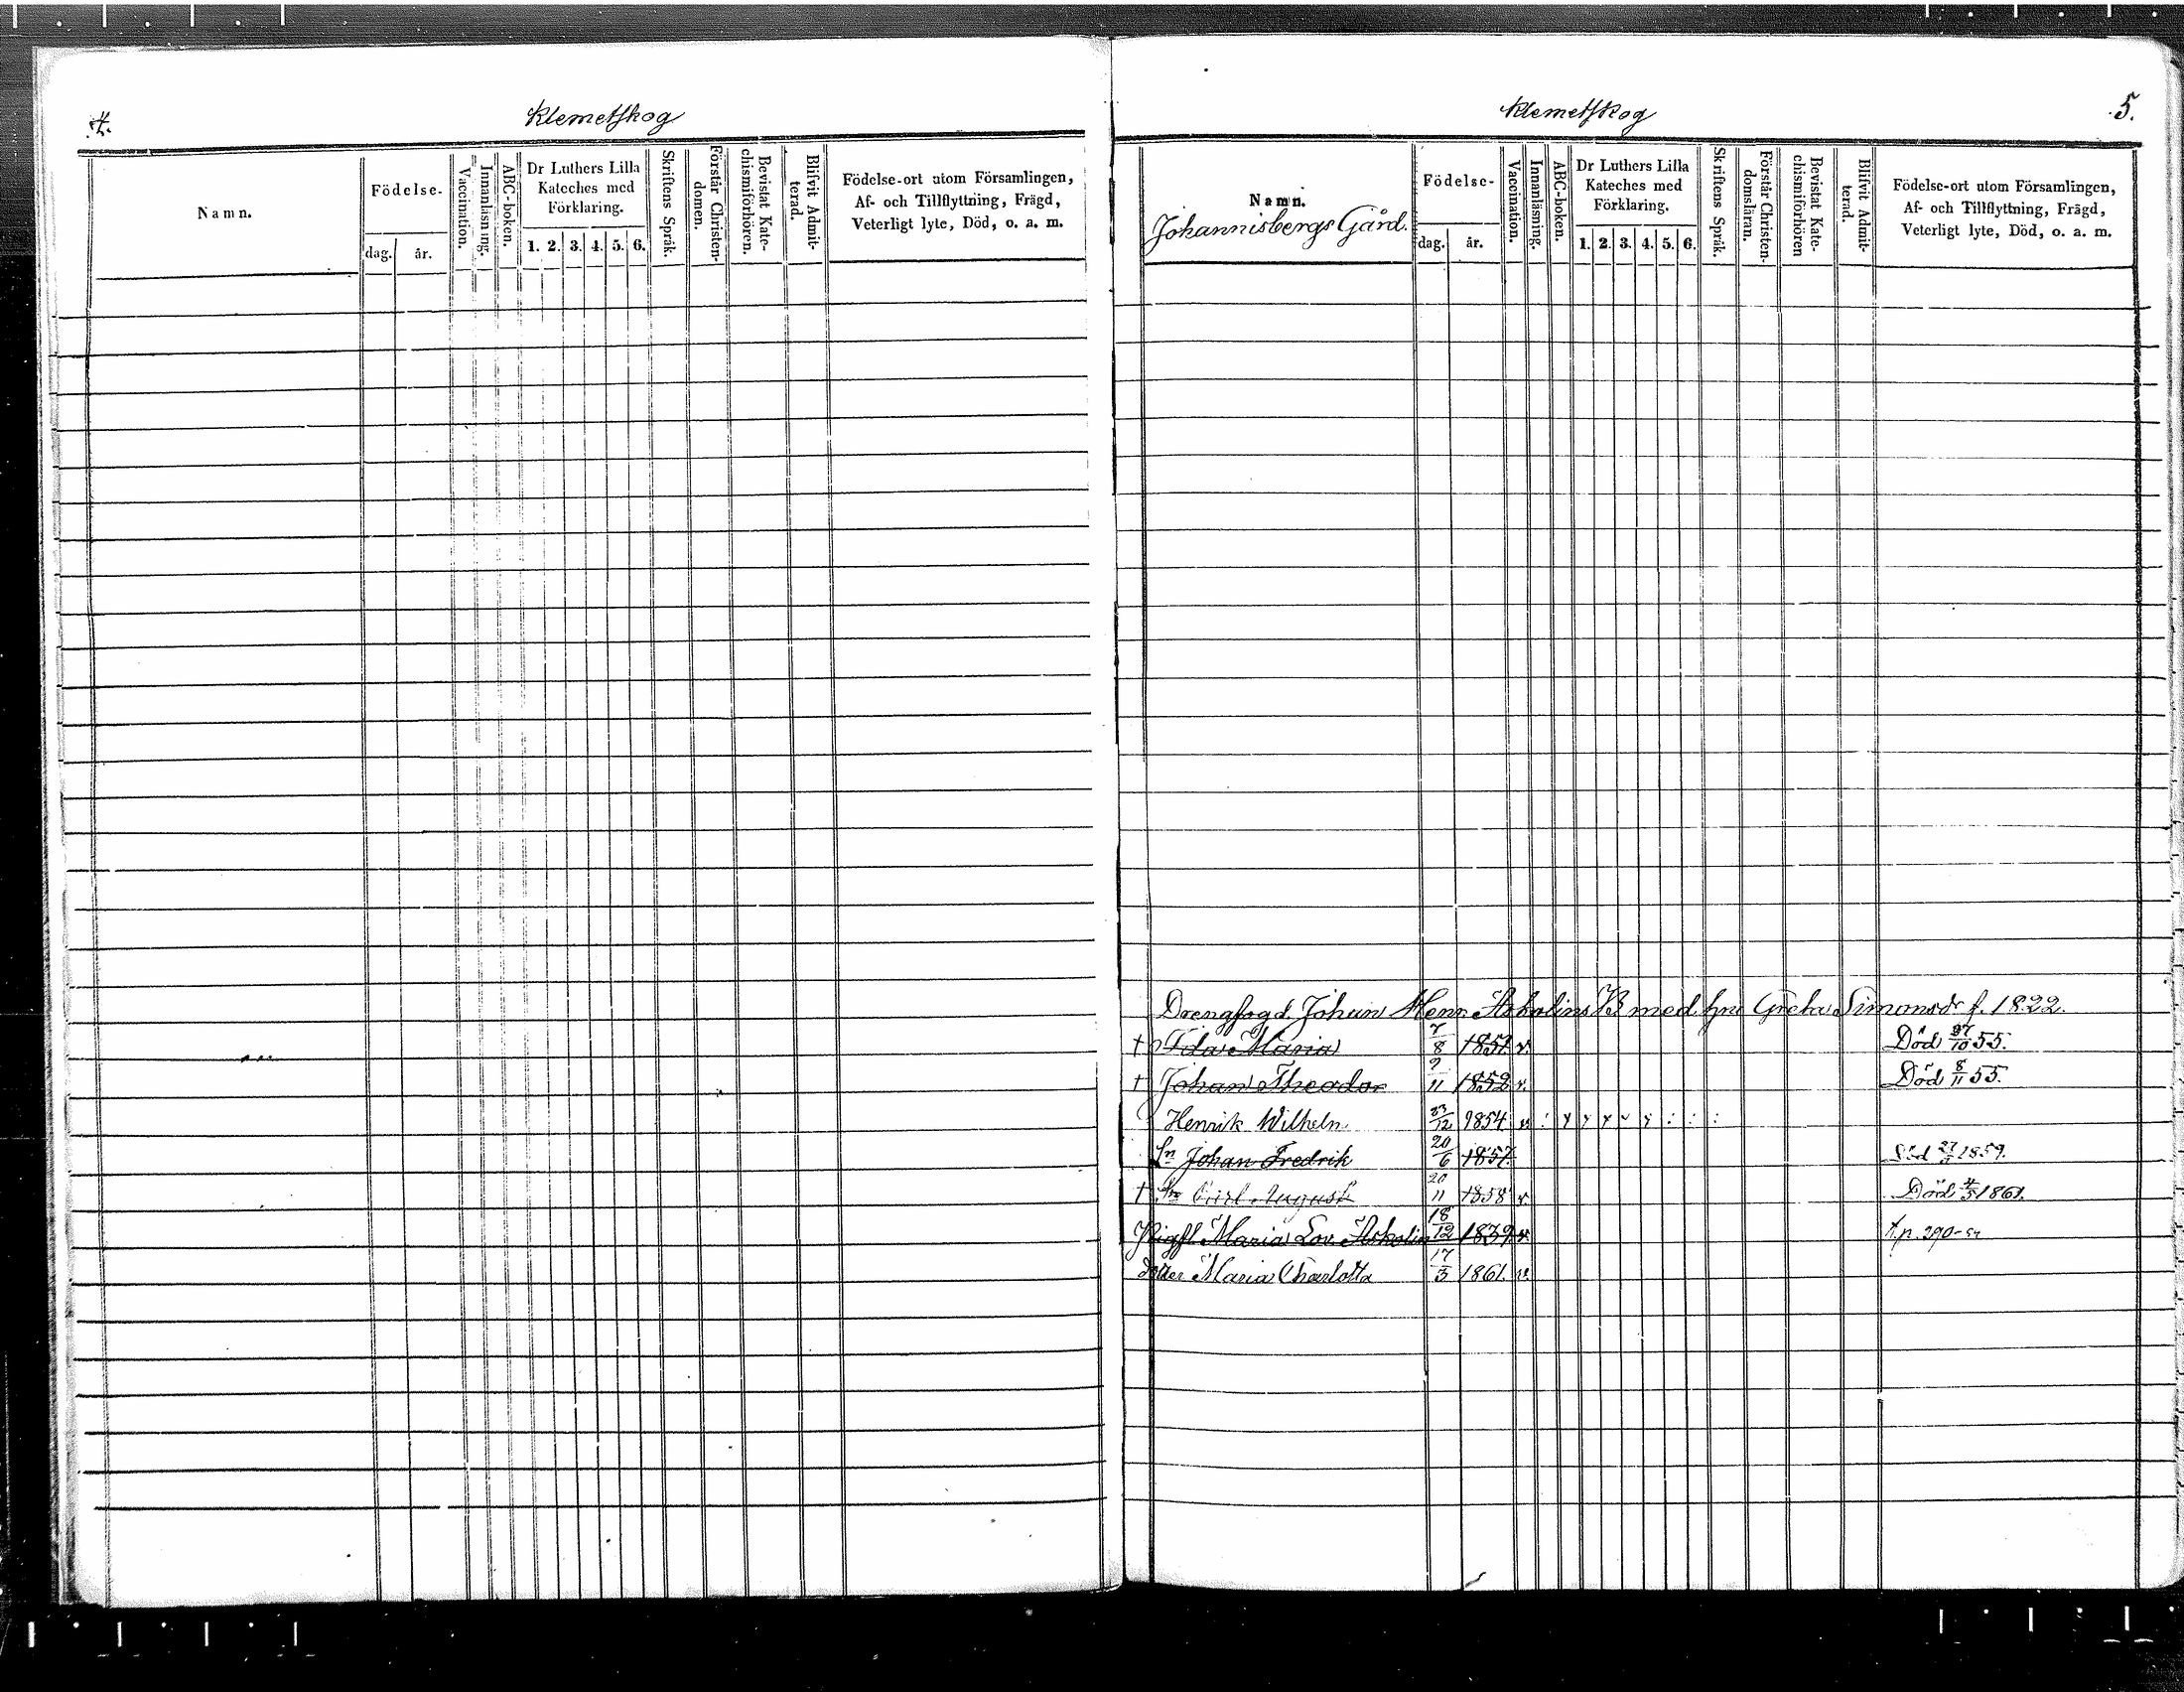 4.
Klemetskog
Namn.
Födelse-
dag. år.
Vaccination.
Innanläsning.
ABC-boken.
Dr Luthers Lilla
Kateches med
Förklaring.
1. 2. 3. 4. 5. 6.
Skriftens Språk.
Förstår Christen-
domen.
Bevistat Kate-
chismiförhören.
Blifvit Admit-
terad.
Födelse-ort utom Församlingen,
Af- och Tillflyttning, Frägd,
Veterligt lyte, Död, o. a. m.
Klemetskog
5.
Namn.
Johannisbergs Gård.
Födelse-
dag. år.
Vaccination.
Innanläsning.
ABC-boken.
Dr Luthers Lilla
Kateches med
Förklaring.
1. 2. 3. 4. 5. 6.
Skriftens Språk.
Förstår Christen-
domsläran.
Bevistat Kate-
chismiförhören
Blifvit Admit-
terad.
Födelse-ort utom Församlingen,
Af- och Tillflyttning, Frägd,
Veterligt lyte, Död, o. a. m.
Drengfogd. Johan Henr. Askolins B med hu Greta Simonsdr f. 1822.
† Ida Maria 7/8 1851 v. Död 27/10 55.
† Johan Theodor 9/11 1852 v. Död 8/11 55.
Henrik Wilhelm 23/12 1854 v
Sn Johan Fredrik 20/6 1857. Död 1859.
† Sn Carl August 20/11 1858 v. Död 4/5 1861.
Pigfl. Maria Lov. Askolin 18/12 1839 v. p. 290
dotter Maria Charlotta 17/3 1861. v.